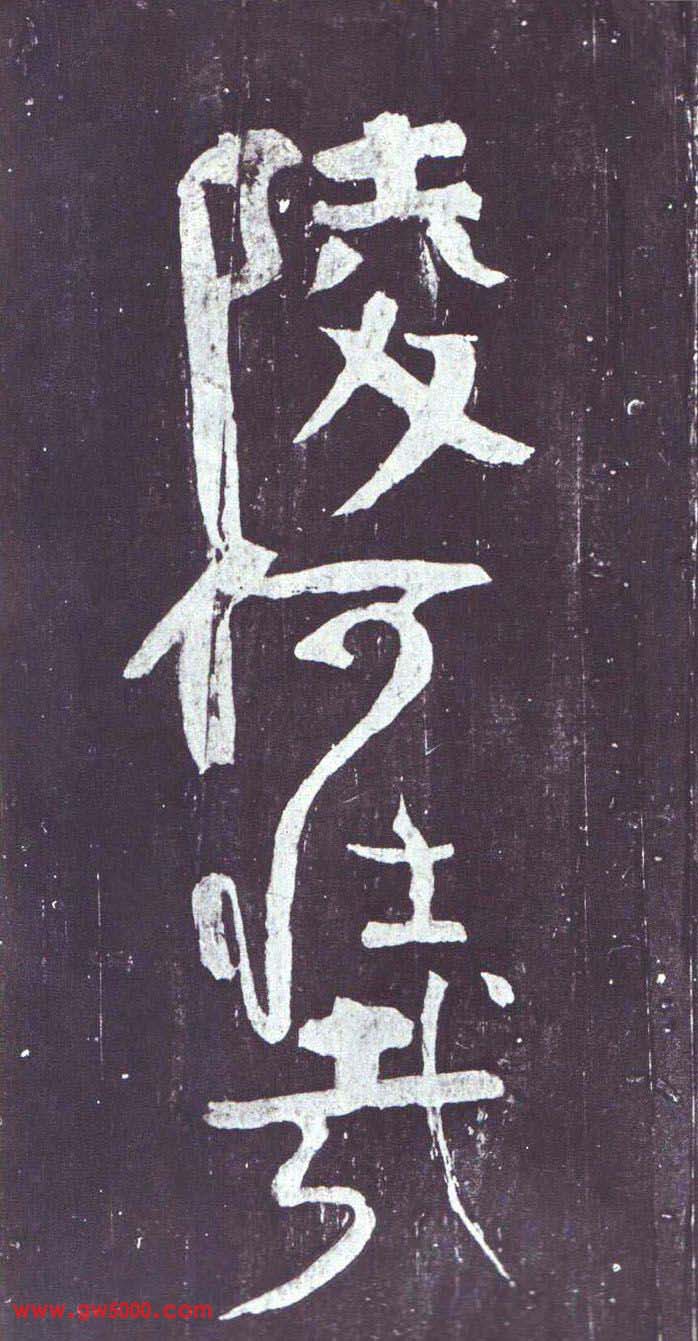 陵何壯哉
www.gw5000.com